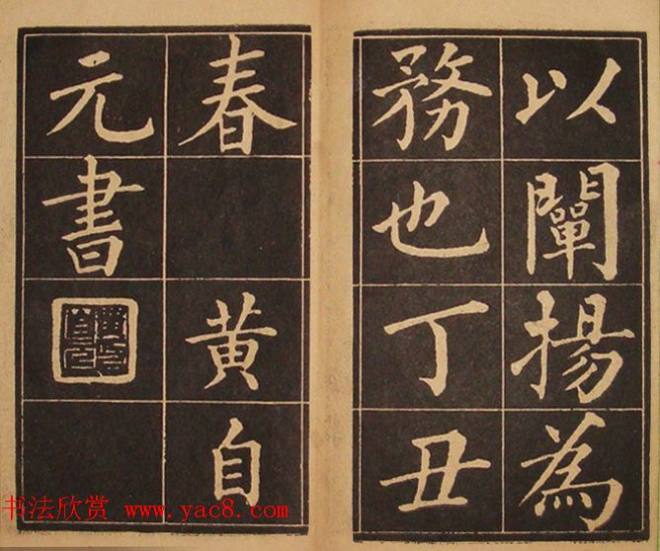 以闡揚為
務也丁丑
春　黃自
元書
书法欣赏 www.yac8.com